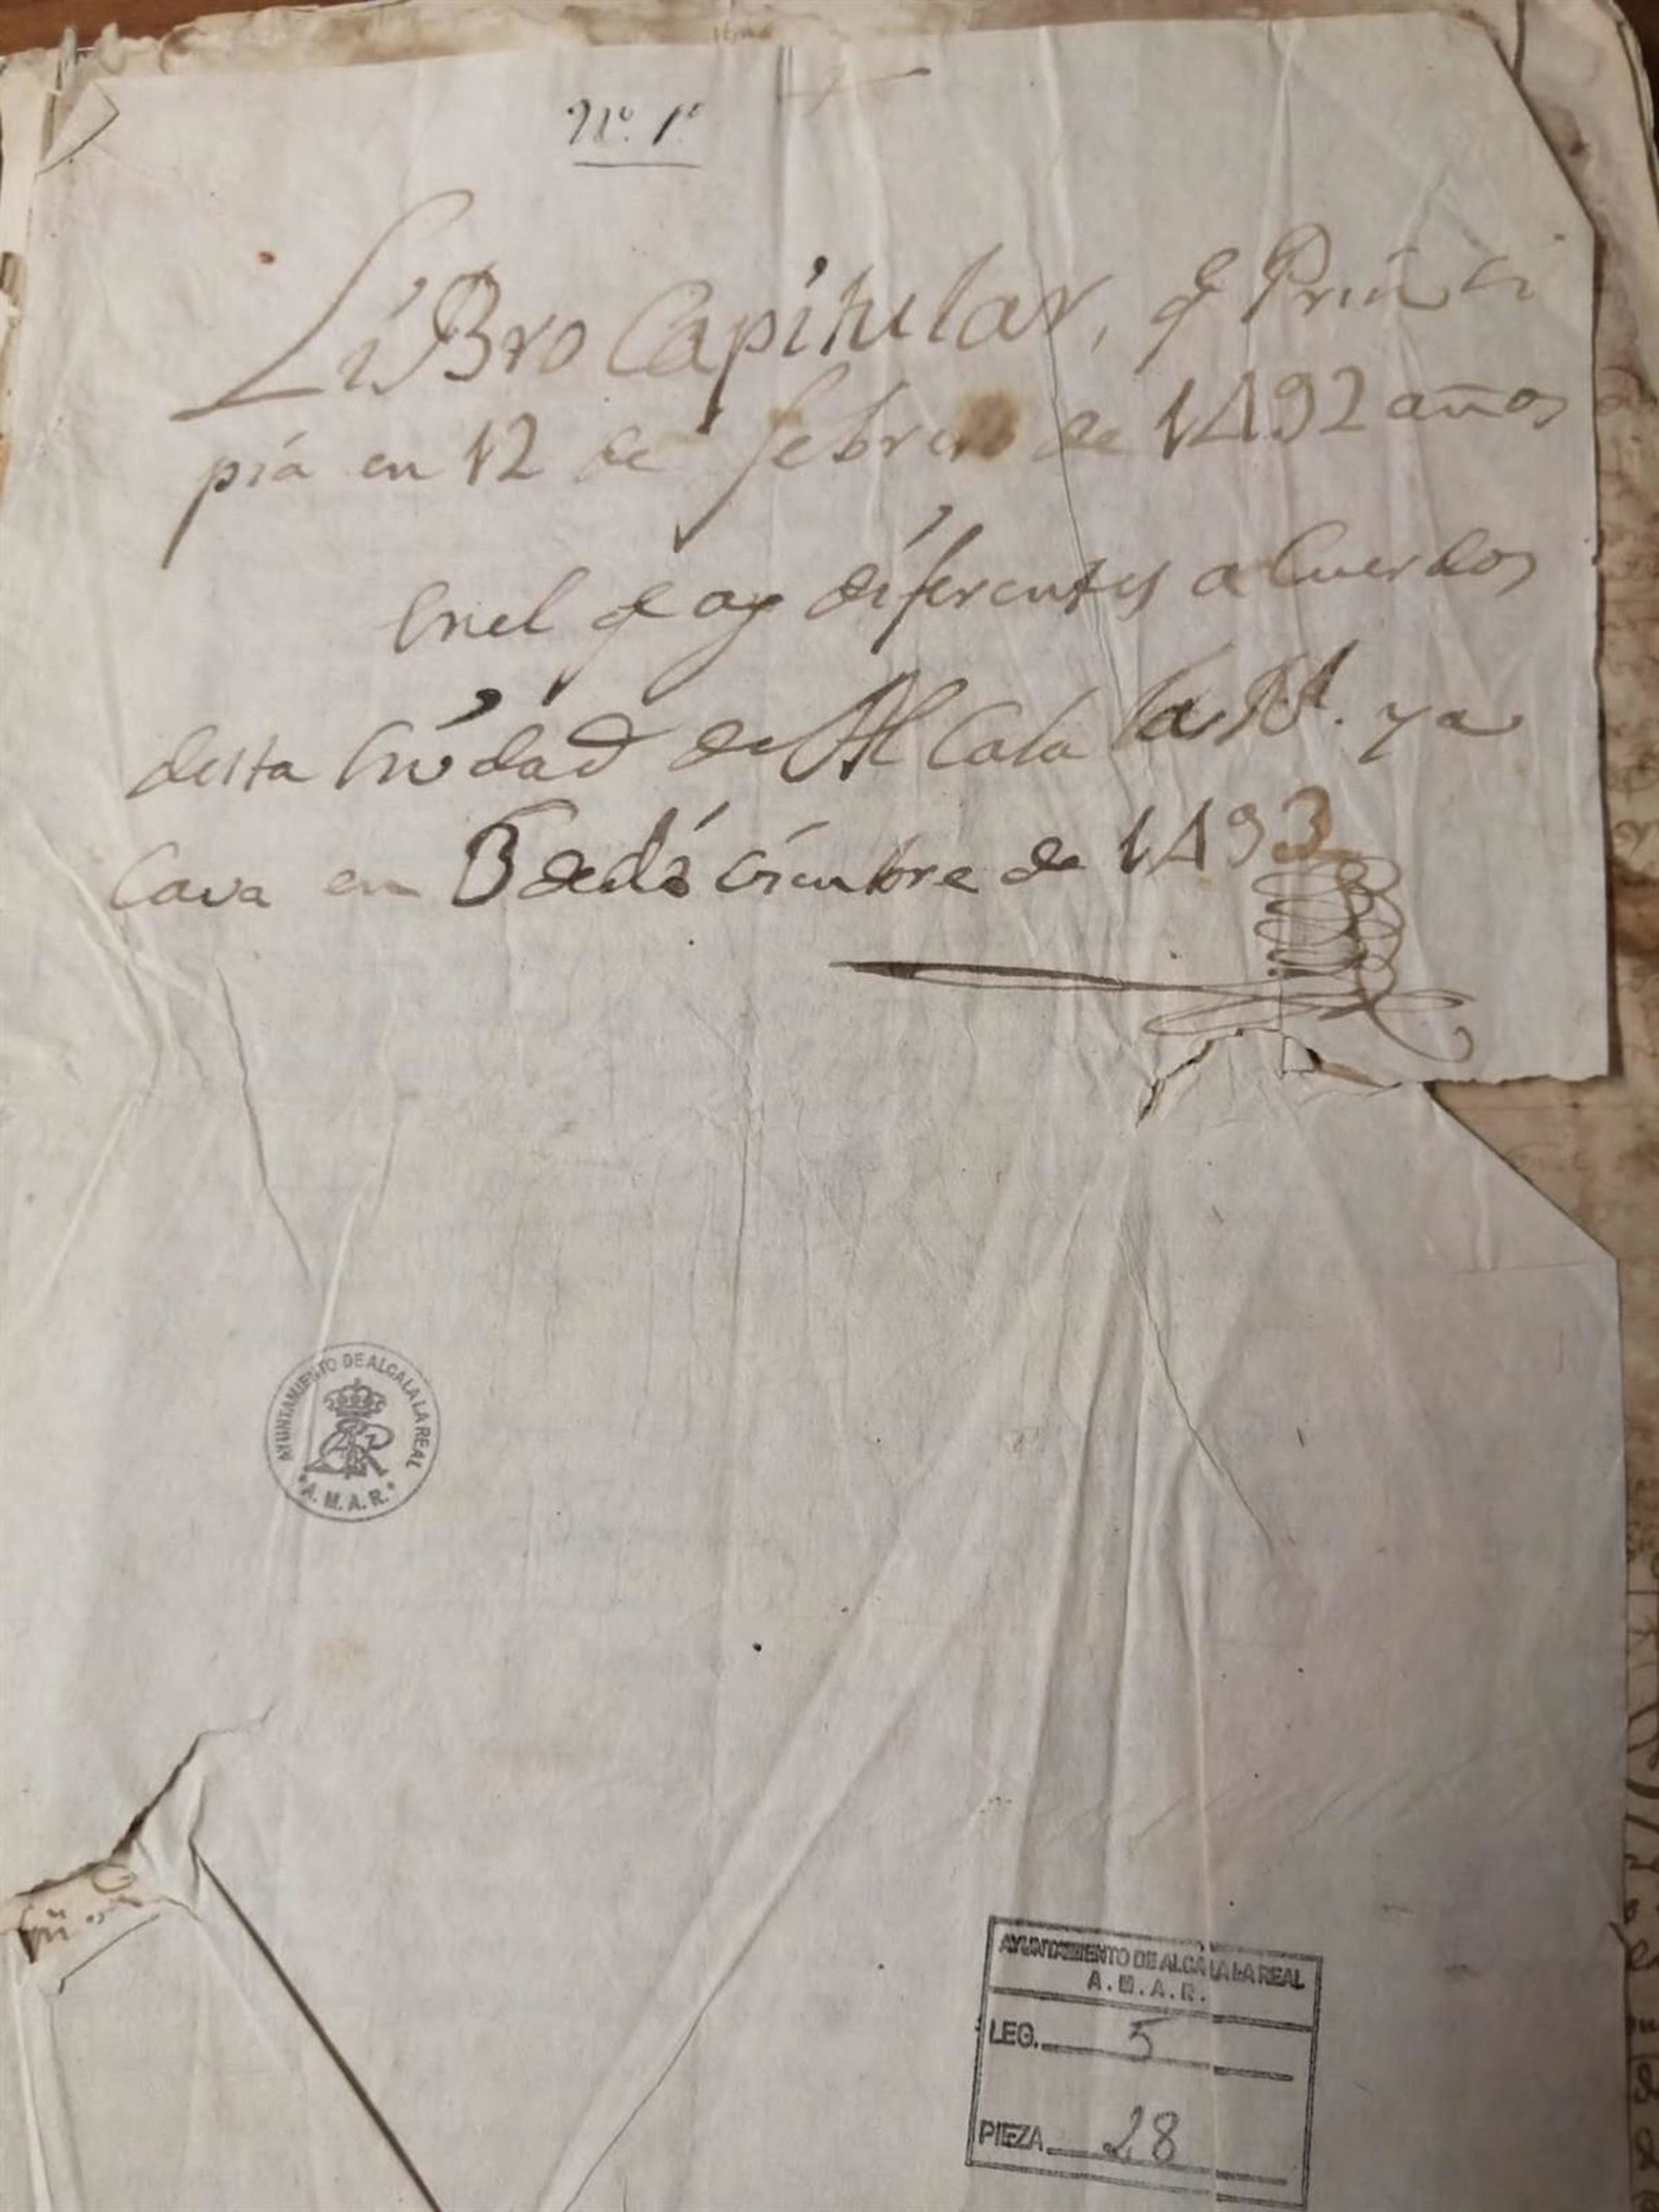 Nº. 1º
LiBro Capitular, q Princi
pia en 12 de febrero de 1492 años
Enel q ay diferentes aCuerdos
desta Ciudad de AlCala la Rl. y a
Cava en 5 de diciembre de 1493
AYUNTAMIENTO DE ALCALA LA REAL
A. M. A. R.
AYUNTAMIENTO DE ALCALA LA REAL
A. M. A. R.
LEG. 5
PIEZA 28